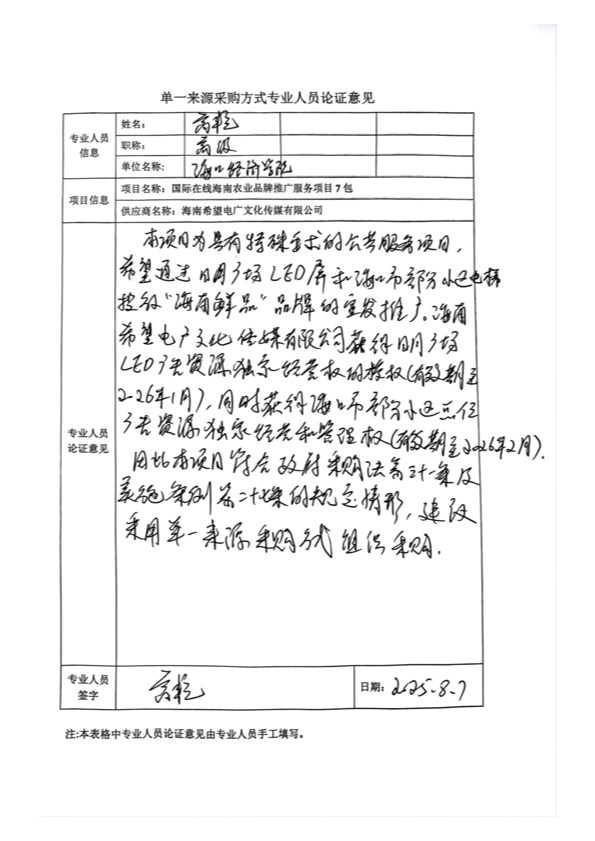 单一来源采购方式专业人员论证意见
专业人员信息
姓名：
职称： 高级
单位名称： 海口经济学院
项目信息
项目名称：国际在线海南农业品牌推广服务项目7包
供应商名称：海南希望电广文化传媒有限公司
专业人员论证意见
本项目为具有特殊要求的公共服务项目，
希望通过日月广场LED屏和海口市部分小区电梯
投放“海南鲜品”品牌的宣发推广。海南
希望电广文化传媒有限公司获得日月广场
LED广告资源独家经营权的授权（有效期至
2026年1月），同时获得海口市部分小区点位
广告资源独家经营和管理权（有效期至2026年2月）.
因此本项目符合政府采购法第三十一条及
实施条例第二十七条的规定情形，建议
采用单一来源采购方式组织采购.
专业人员签字
日期： 2025-8-7
注:本表格中专业人员论证意见由专业人员手工填写。